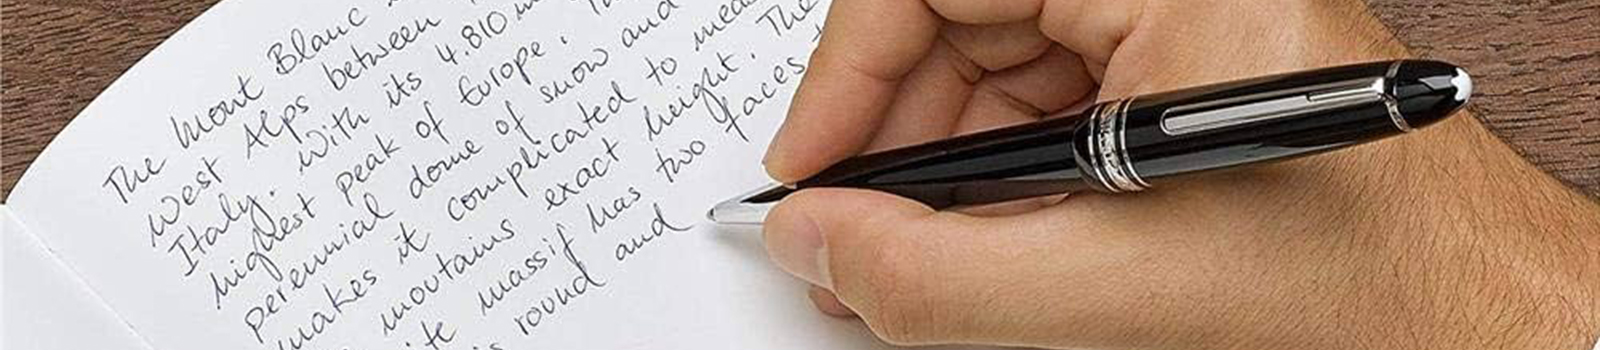 The Mont Blanc
West Alps between
Italy. With its 4.810 m
highest peak of Europe.
perennial dome of snow and
makes it complicated to
moutains exact height. The
massif has two faces
round and